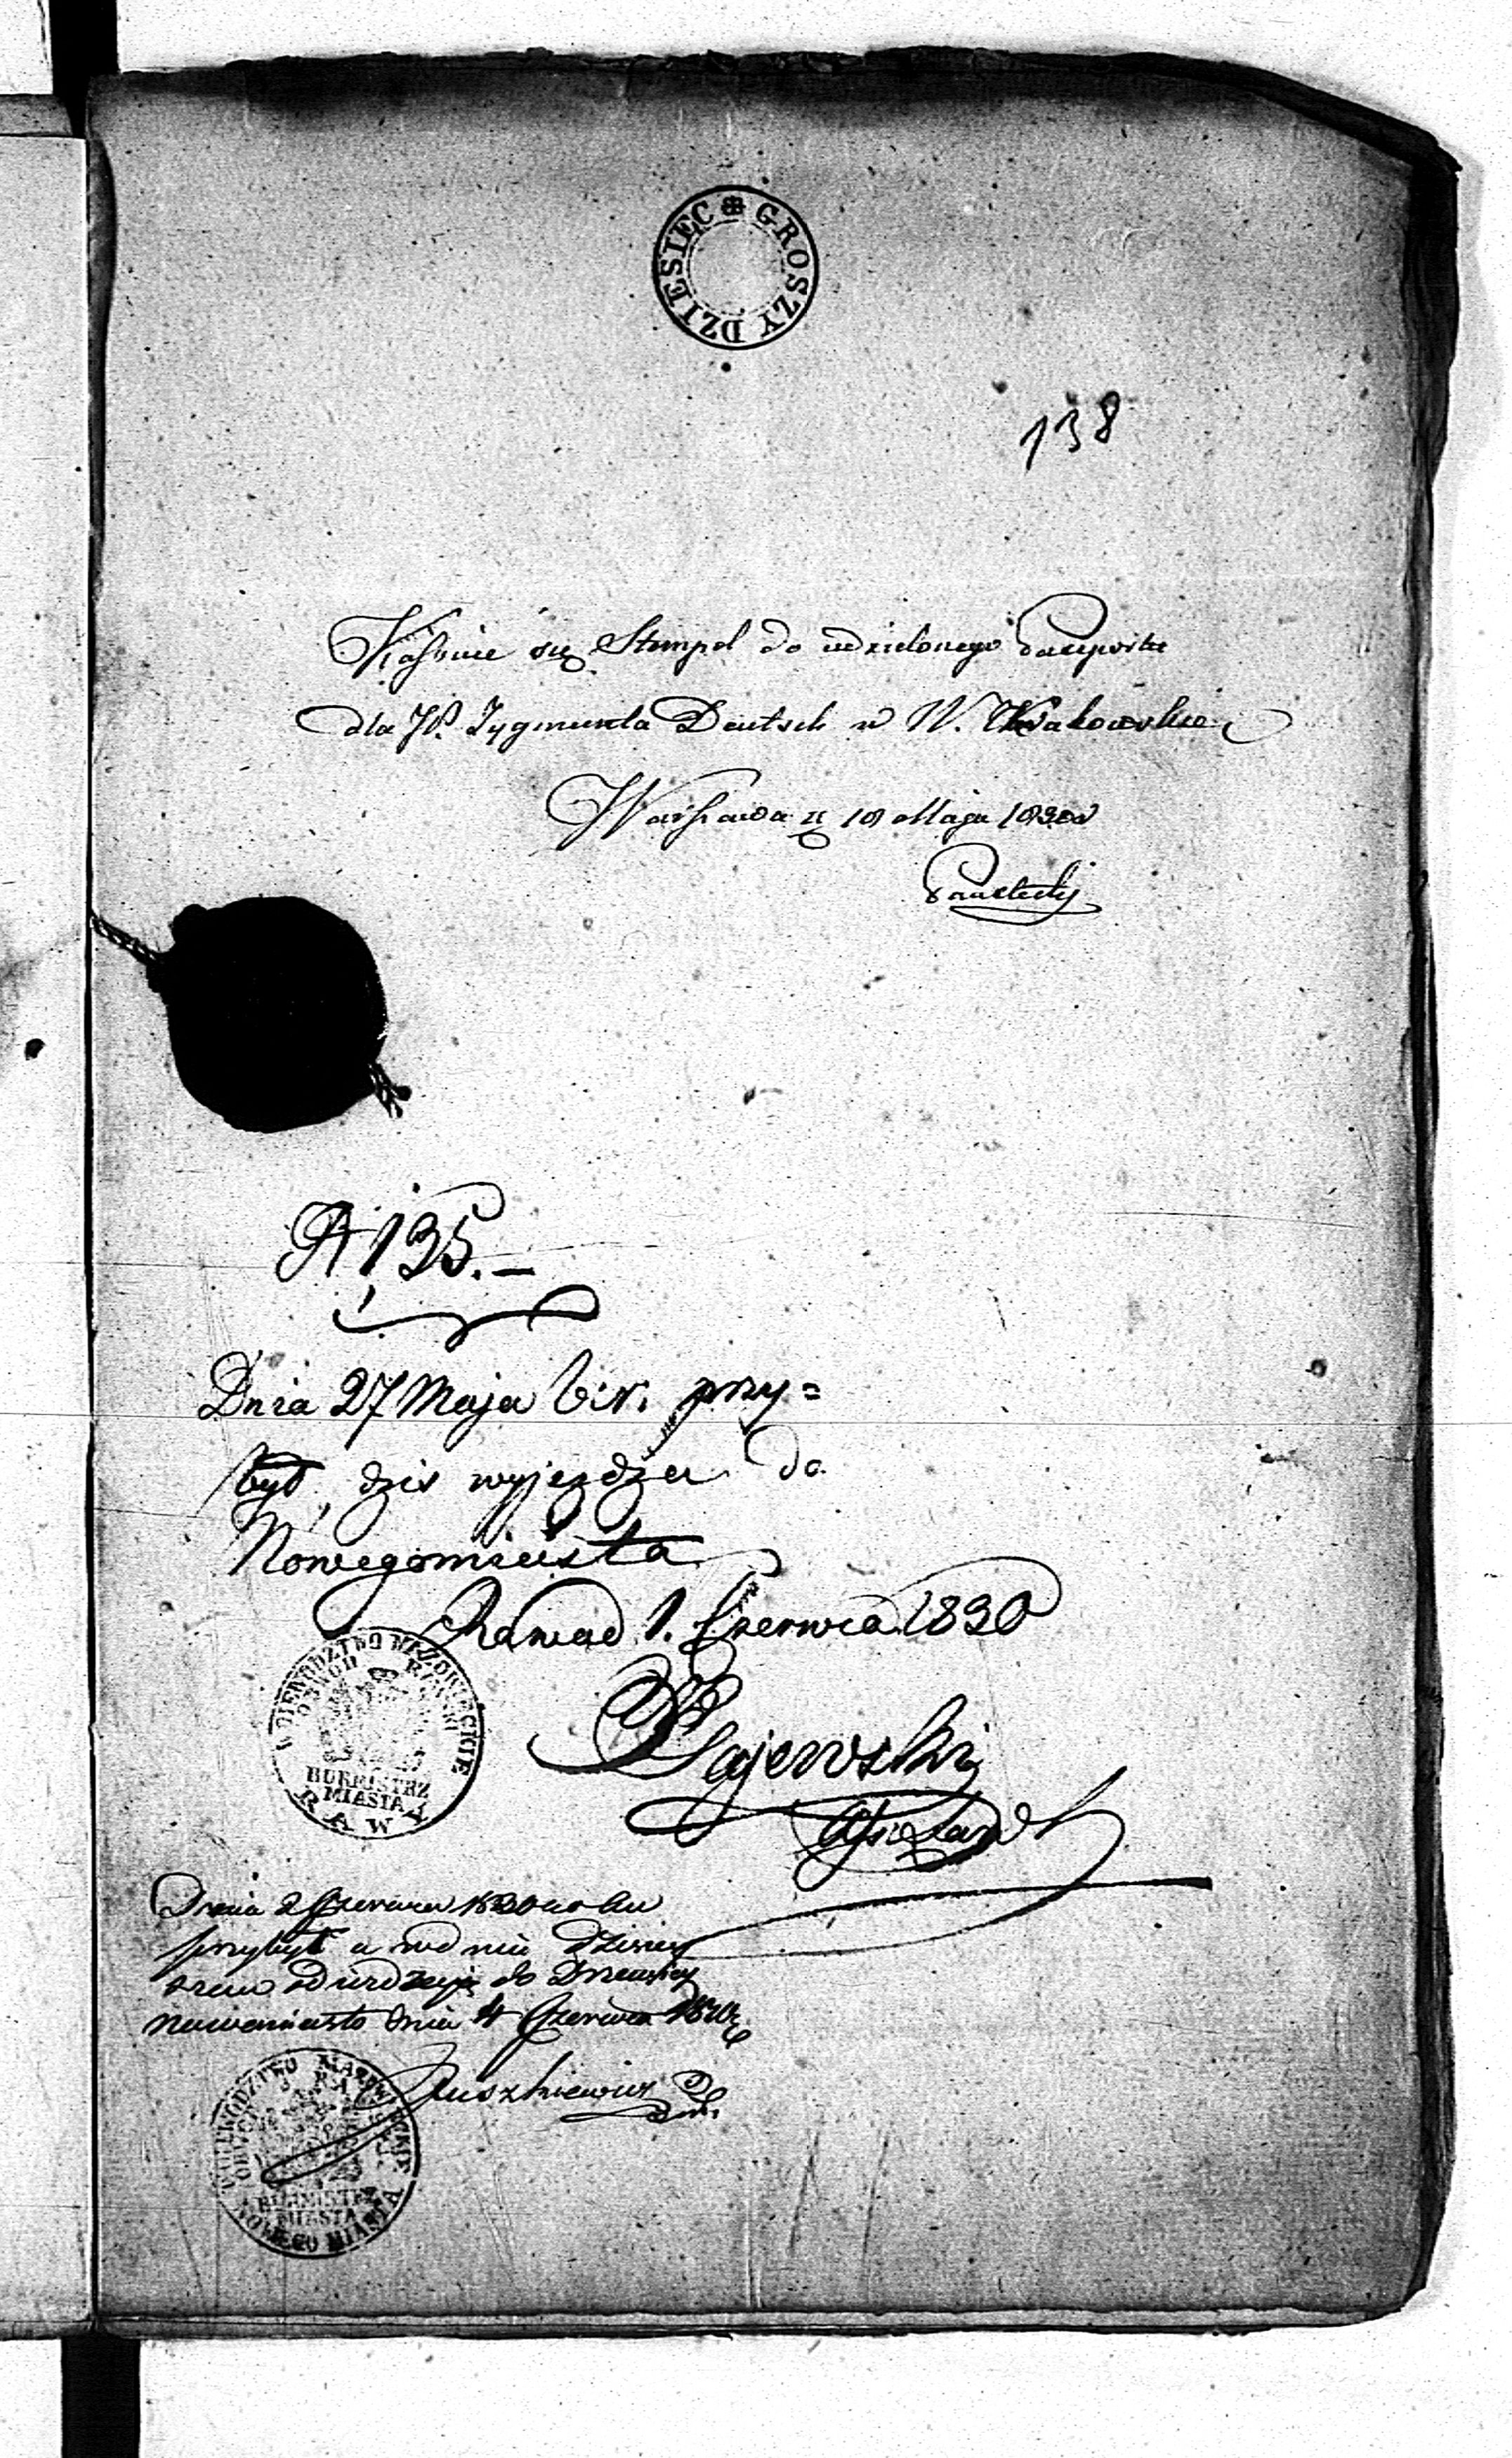 GROSZY DZIESIEC
138
Kassuie się Stempel do udzielonego Paszportu
dla W. Zygmunta Deutsch w W. Krakowskie
Warszawa d. 18 Maja 1830
№ 135.—
Dnia 27 Maja b.r. przy=
był, dzis wyjezdza do
Nowegomiasta
Rawa d. 1. Czerwca 1830
Gajewski
WOIEWODZTWO MAZOWIECKIE
OBWOD RAWSKI
BURMISTRZ
MIASTA
RAWA
Dnia 2 Czerwca 1830 roku
przybył a w dniu dzisiey
szem do Drzewicy
Nowemiasto dnia 4 Czerwca
Ruszkiewicz
WOIEWODZTWO MAZOWIECKIE
BURMISTRZ
MIASTA
NOWEGO MIASTA